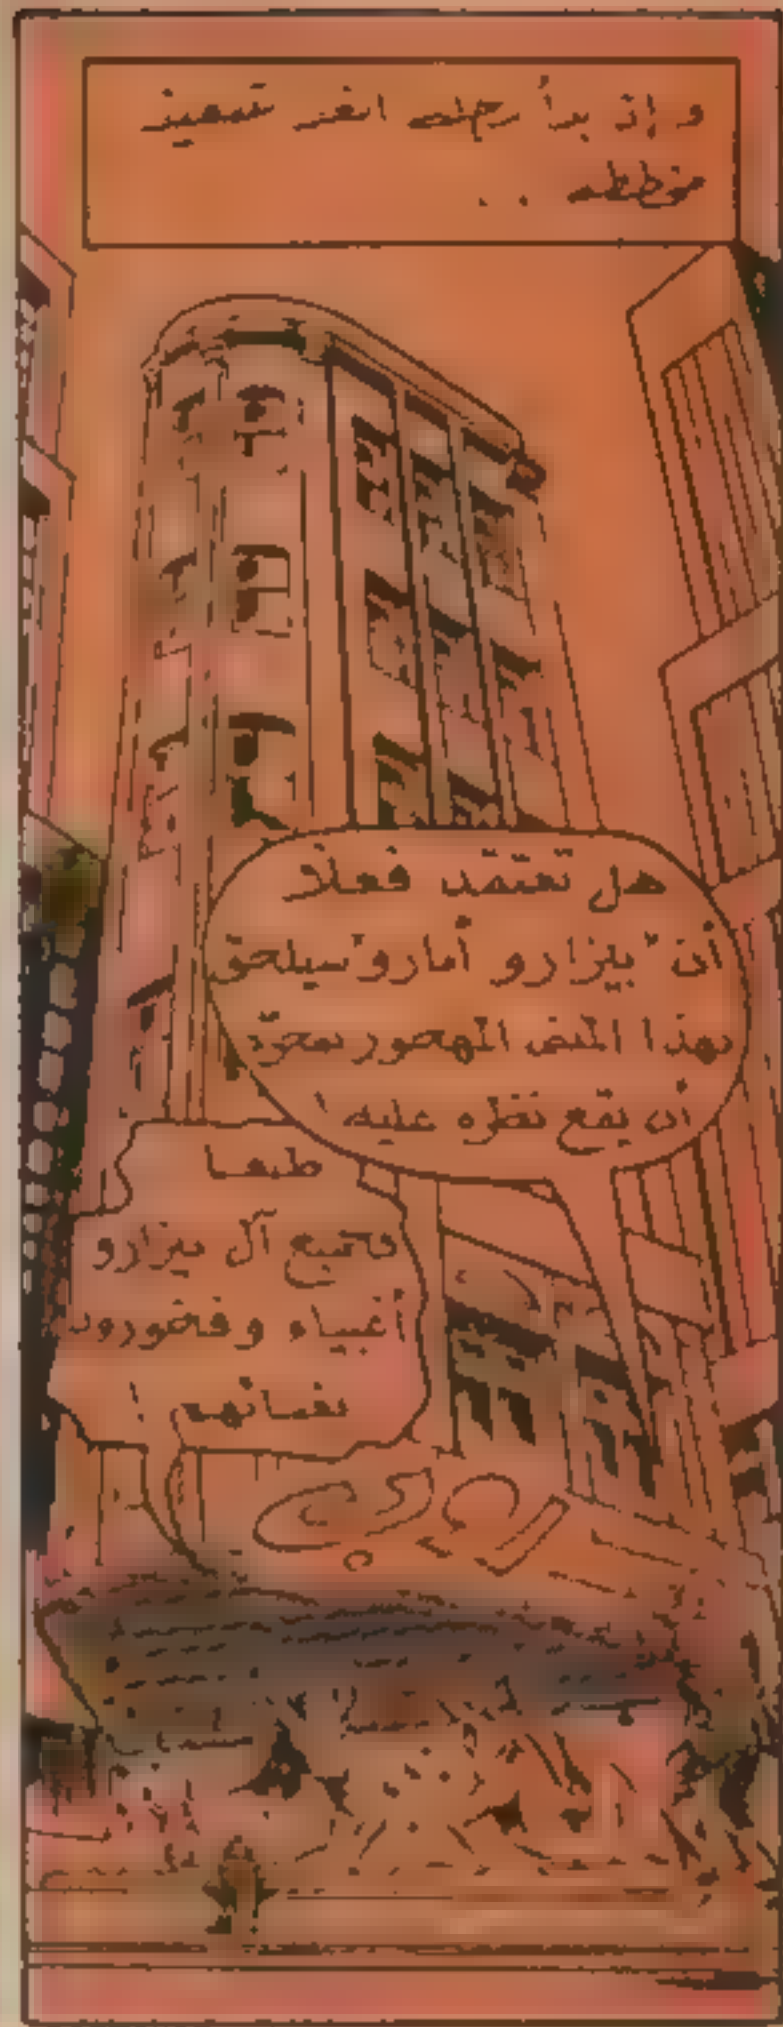 و إذ بدأ رجله الفر تنفيذ
خططه . .
هل تعتقد فعلاً
أن "بيزارو أمارو" سيلحق
بهذا اللص المهصور بمجرّد
أن يقع نظره عليه !
طبعا
فجميع آل بيزارو
أغبياء وفخورون
بغبائهم